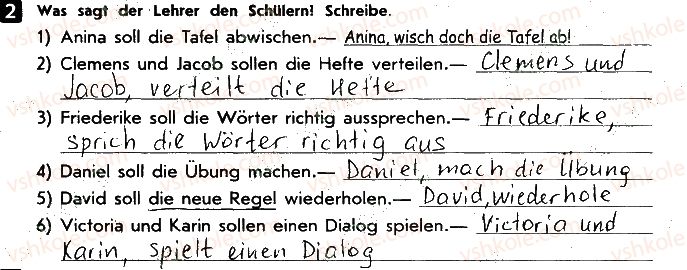 2 Was sagt der Lehrer den Schülern! Schreibe.
1) Anina soll die Tafel abwischen.— Anina, wisch doch die Tafel ab!
2) Clemens und Jacob sollen die Hefte verteilen.— Clemens und
Jacob, verteilt die Hefte
3) Friederike soll die Wörter richtig aussprechen.— Friederike,
sprich die Wörter richtig aus
4) Daniel soll die Übung machen.— Daniel, mach die Übung
5) David soll die neue Regel wiederholen.— David, wiederhole
6) Victoria und Karin sollen einen Dialog spielen.— Victoria und
Karin, spielt einen Dialog